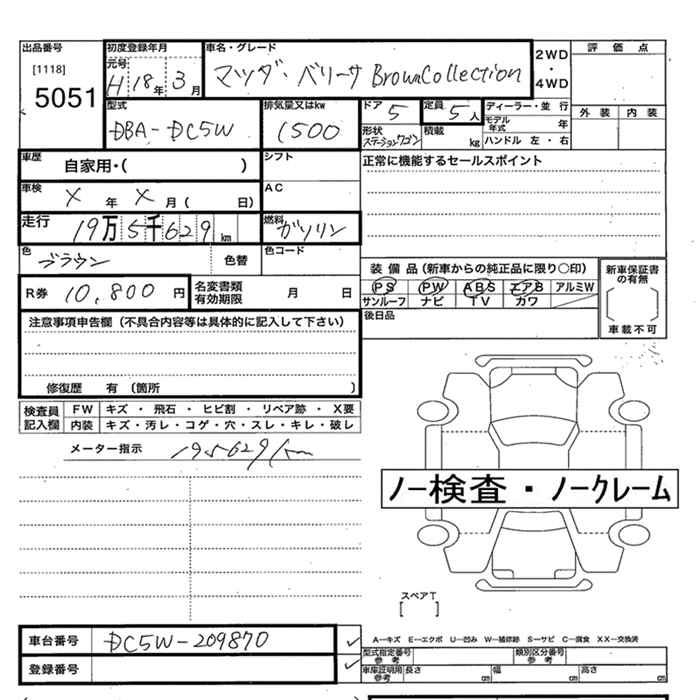 出品番号 [1118] 5051
初度登録年月 元号 H 18年 3月
車名・グレード マツダ・ベリーサ Brown Collection
2WD ・ 4WD
評価点
外装 内装
型式 DBA-DC5W
排気量又はkw 1500
ドア 5
定員 5人
形状 ステーションワゴン
積載 kg
ディーラー・並行
モデル年式 年
ハンドル 左・右
車歴 自家用・( )
シフト
正常に機能するセールスポイント
車検 X 年 X 月 ( 日)
AC
走行 19万5千629km
燃料 ガソリン
色 ブラウン 色替
色コード
装備品(新車からの純正品に限り○印)
PS PW ABS エアB アルミW
サンルーフ ナビ TV カワ
新車保証書の有無
車載不可
R券 10,800円
名変書類有効期限 月 日
後日品
注意事項申告欄(不具合内容等は具体的に記入して下さい)
修復歴 有 (箇所 )
検査員記入欄
FW キズ・飛石・ヒビ割・リペア跡・X要
内装 キズ・汚レ・コゲ・穴・スレ・キレ・破レ
メーター指示 195629km
ノー検査・ノークレーム
スペアT
[ ]
車台番号 DC5W-209870
登録番号
A-キズ E-エクボ U-凹み W-補修跡 S-サビ C-腐食 XX-交換済
型式指定番号 参考
類別区分番号 参考
車庫証明用 参考 長さ cm 幅 cm 高さ cm